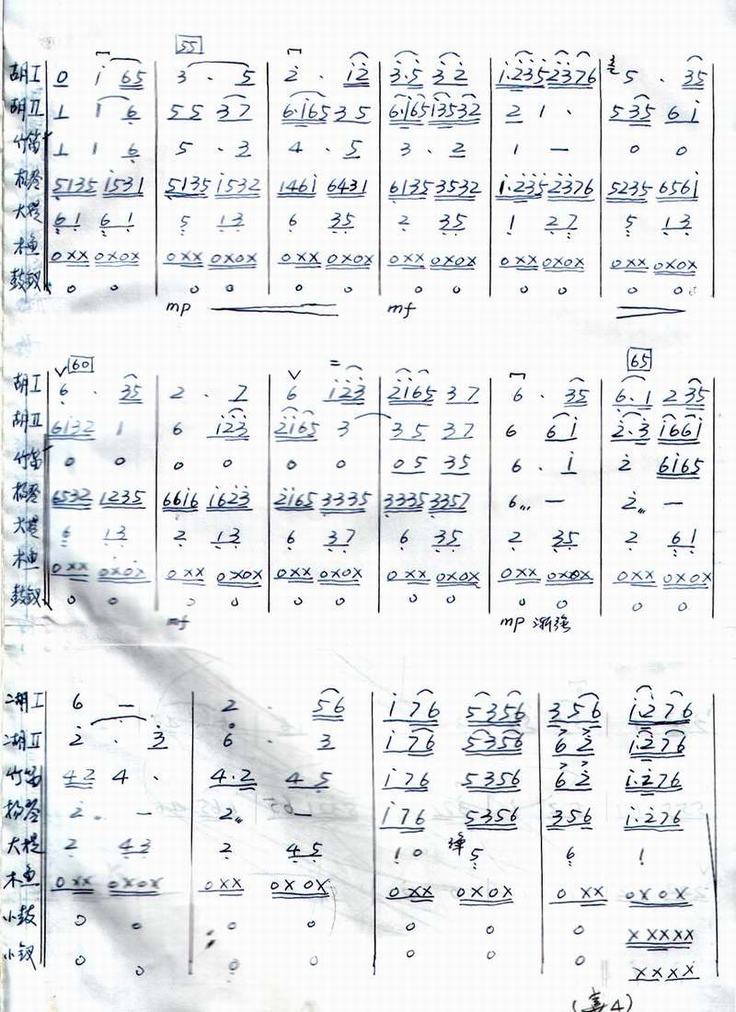 55
胡I 0 i 65 | 3 · 5 | 2 · i2 | 3·5 32 | 1·2352376 | 5 · 35
胡II 1 1 6 | 55 37 | 6·165 35 | 6·16513532 | 2 1 · | 535 6i
竹笛 1 1 6 | 5 · 3 | 4 · 5 | 3 · 2 | 1 — | 0 0
扬琴 5135 1531 | 5135 1532 | 1461 6431 | 6135 3532 | 1·2352376 | 5235 6561
大提 61 61 | 5 13 | 6 35 | 2 35 | 1 27 | 5 13
木鱼 0XX 0X0X | 0XX 0X0X | 0XX 0X0X | 0XX 0X0X | 0XX 0X0X | 0XX 0X0X
鼓钗 0 0 | 0 0 | 0 0 | 0 0 | 0 0 | 0 0
mp mf
60 65
胡I 6 · 35 | 2 · 7 | 6 123 | 2165 37 | 6 · 35 | 6·1 235
胡II 6132 1 | 6 123 | 2165 3 | 35 37 | 6 61 | 2·3 1661
竹笛 0 0 | 0 0 | 0 0 | 05 35 | 6 · i | 2 6165
扬琴 6532 1235 | 6616 1623 | 2165 3335 | 3335 3357 | 6 — | 2 —
大提 6 13 | 2 13 | 6 37 | 6 35 | 2 35 | 2 61
木鱼 0XX 0X0X | 0XX 0X0X | 0XX 0X0X | 0XX 0X0X | 0XX 0X0X | 0XX 0X0X
鼓钗 0 0 | 0 0 | 0 0 | 0 0 | 0 0 | 0 0
mf mp 渐强
胡I 6 — | 2 · 56 | i76 5356 | 356 i·276
胡II 2 · 3 | 6 · 3 | i76 5356 | 62 i·276
竹笛 42 4 · | 4·2 45 | i76 5356 | 62 i·276
扬琴 2 — | 2 — | i76 5356 | 356 i·276
大提 2 43 | 2 45 | 1 0 5 | 6 1
木鱼 0XX 0X0X | 0XX 0X0X | 0XX 0X0X | 0XX 0X0X
小鼓 0 0 | 0 0 | 0 0 | 0 XXXXX
小钗 0 0 | 0 0 | 0 0 | 0 XXXX